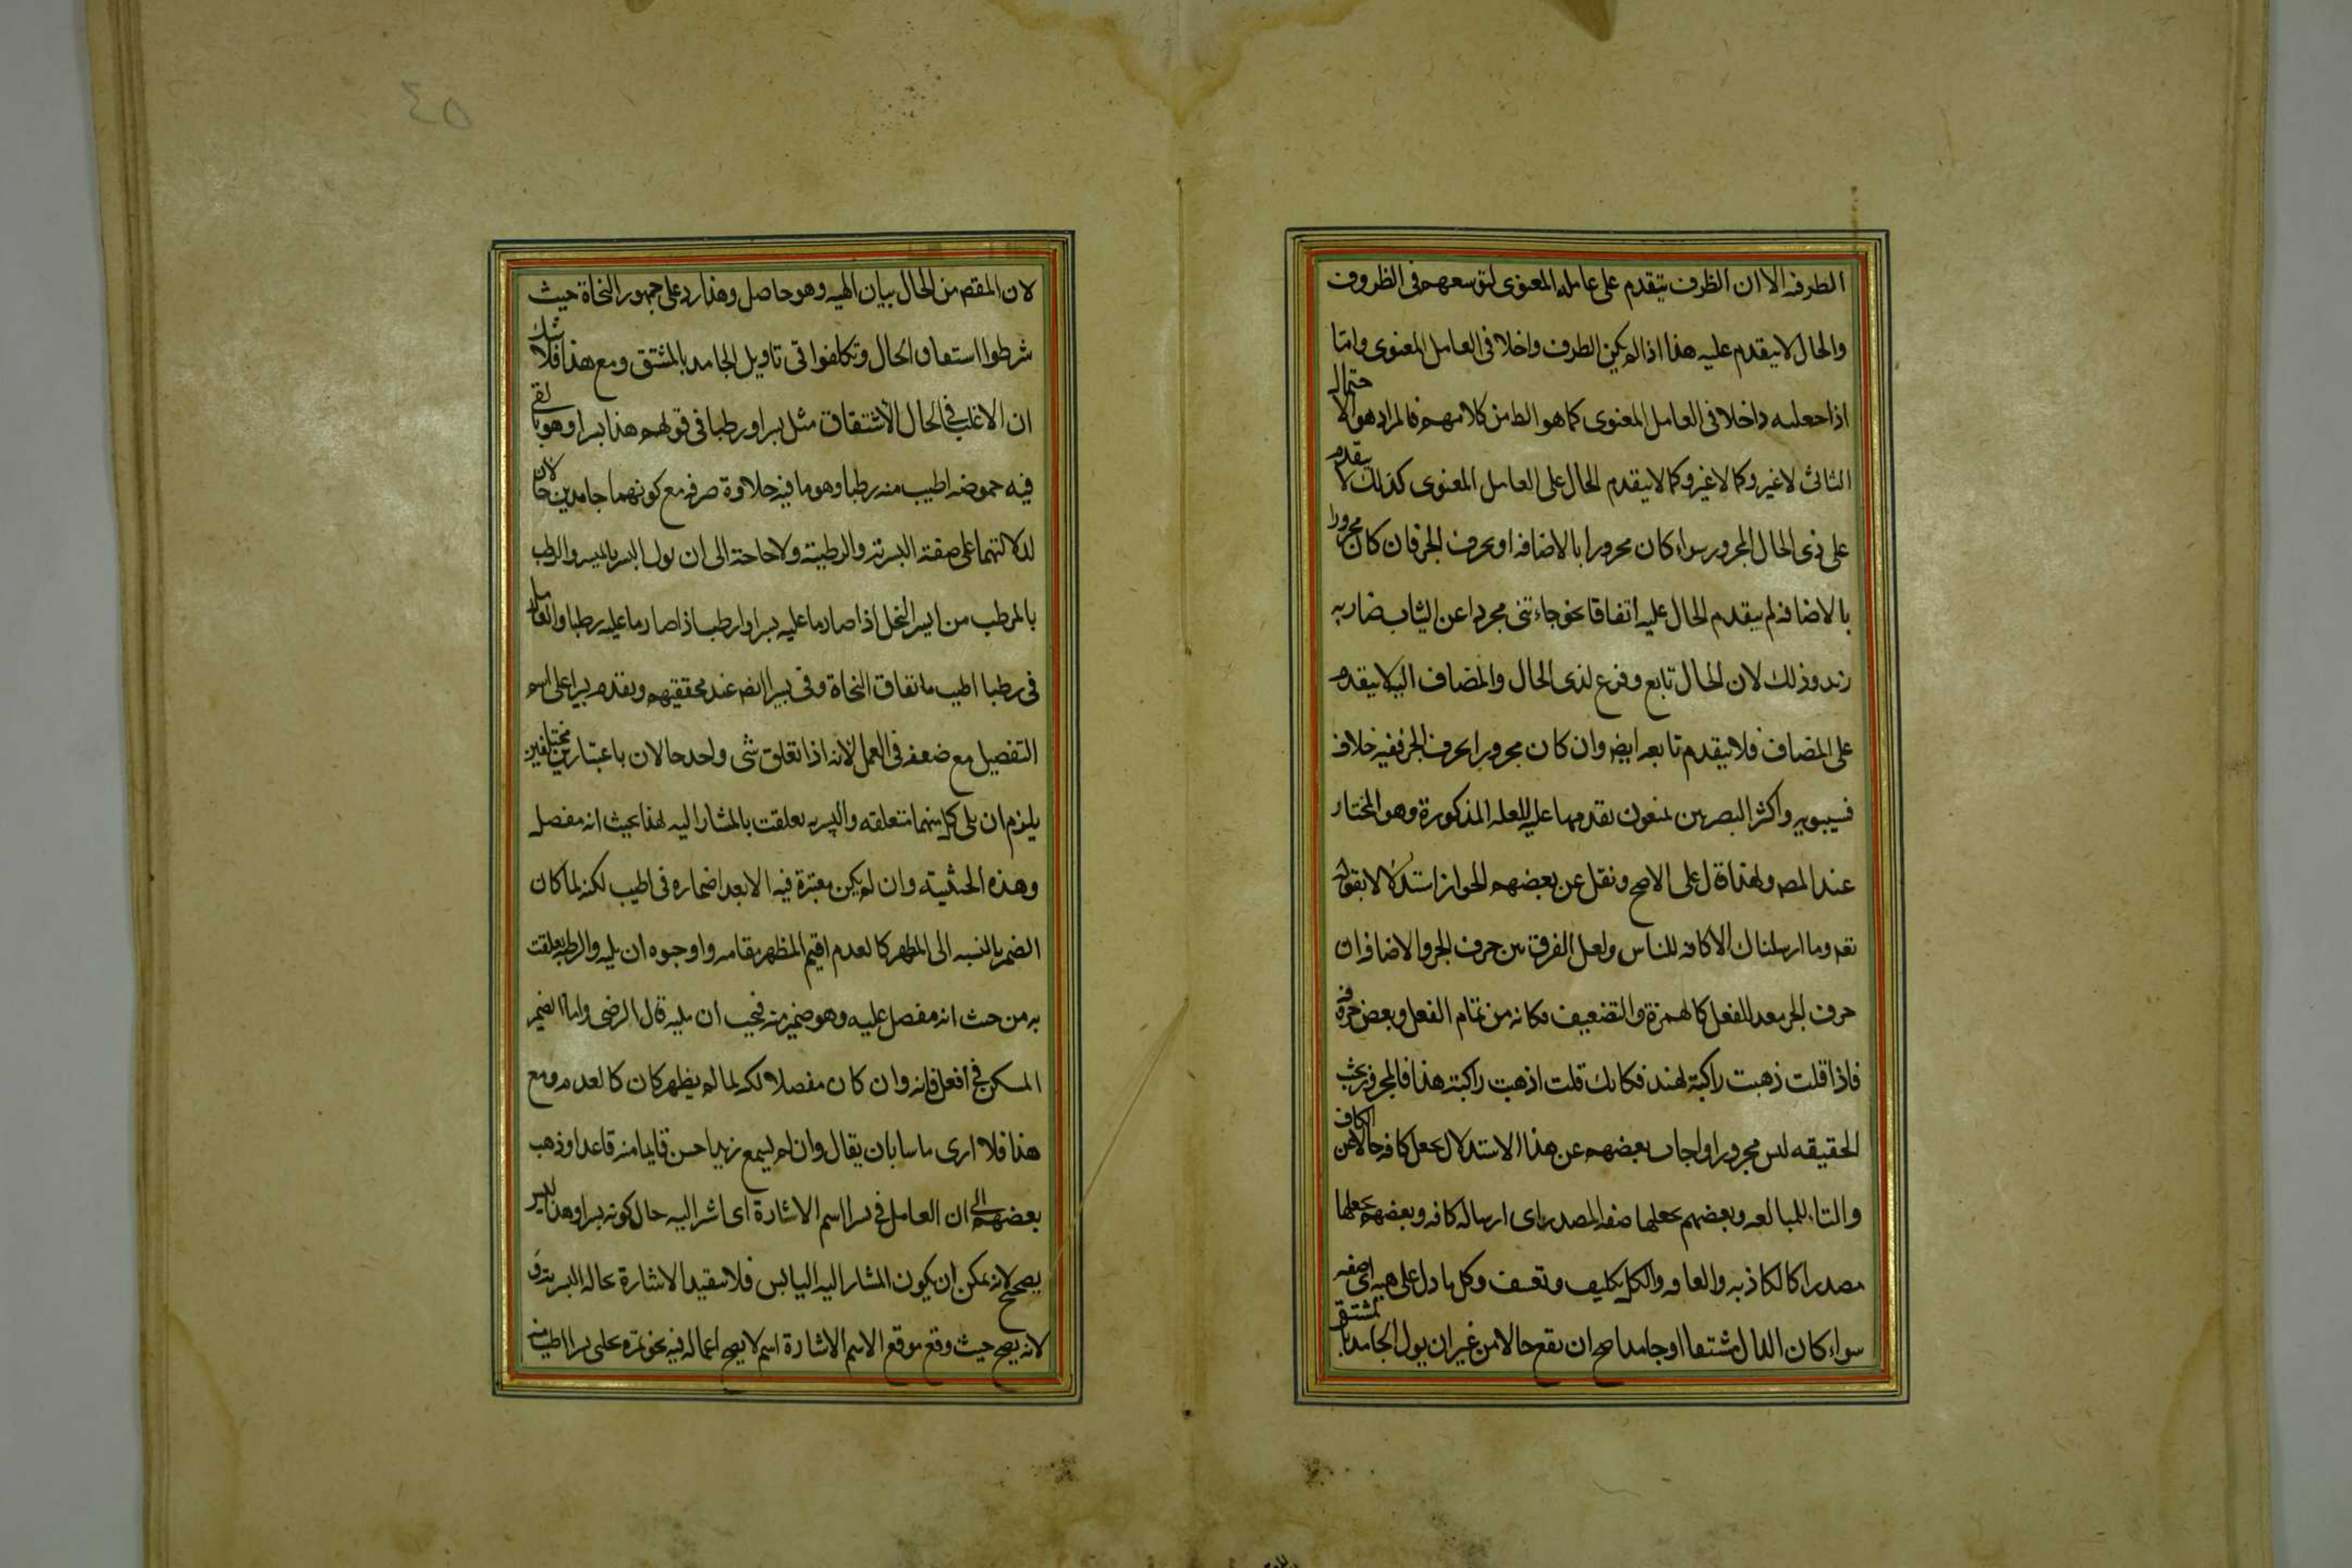 الطرفه الا ان الظرف يتقدم على عامله المعنوى لتوسعهم فى الظروف
والحال لا يتقدم عليه هذا اذا لم يكن الظرف داخلا فى العامل المعنوى واما
اذا جعلته داخلا فى العامل المعنوى كما هو الظ من كلامهم فالمراد هو الاحتمال
الثانى لا غير وكما لا غير وكما لا يتقدم الحال على العامل المعنوى كذلك لا يتقدم
على ذى الحال المجرور سواء كان مجرورا بالاضافه او بحرف الجر فان كان مجرورا
بالاضافه لم يتقدم الحال عليه اتفاقا نحو جاءتنى مجردا عن الثياب ضاربه
زيد وذلك لان الحال تابع وفرع لذى الحال والمضاف اليه لا يتقدم
على المضاف فلا يتقدم تابعه ايض وان كان مجرورا بحرف الجر ففيه خلاف
فسيبويه واكثر البصريين يمنعون تقدمها عليه للعله المذكورة وهو المختار
عند المص ولهذا قال على الاصح ونقل عن بعضهم الجواز استدلالا بقوله
تعه وما ارسلناك الا كافه للناس ولعل الفرق بين حرف الجر والاضافه ان
حرف الجر معد للفعل كالهمزة والتضعيف فكانه من تمام الفعل وبعض حروفه
فاذا قلت ذهبت راكبة بهند فكانك قلت اذهبت راكبة هندا فالمجرور بحسب
الحقيقه ليس مجرورا واجاب بعضهم عن هذا الاستدلال بجعل كافه حالا عن الكاف
والتاء للمبالغه وبعضهم بجعلها صفه لمصدر اى ارساله كافه وبعضهم بجعلها
مصدرا كالكاذبه والعافيه والكل تكليف وتعسف وكل ما دل على هيه اى صفه
سواء كان الدال مشتقا او جامدا صح ان يقع حالا من غير ان يول الجامد بالمشتق
لان المقصم من الحال بيان الهيه وهو حاصل وهذا رد على جمهور النحاة حيث
شرطوا اشتقاق الحال وتكلفوا فى تاويل الجامد بالمشتق ومع هذا فلا شك
ان الاغلب فى الحال الاشتقاق مثل بسرا ورطبا فى قولهم هذا بسرا وهو ما بقى
فيه حموضه اطيب منه رطبا وهو ما فيه حلاوة صرفه مع كونهما جامدين حالان
لدلالتهما على صفة البسرية والرطبية ولا حاجة الى ان يول البسر بالمبسر والرطب
بالمرطب من ابسر النخل اذا صار ما عليه بسرا وارطب اذا صار ما عليه رطبا والعامل
فى رطبا اطيب باتفاق النحاة وفى بسرا ايضه عند محققيهم وتقدم بسرا على اسم
التفضيل مع ضعفه فى العمل لانه اذا تعلق شى واحد حالان باعتبارين مختلفين
يلزم ان يلى كل منهما متعلقه والبسريه تعلقت بالمشار اليه بهذا بحيث انه مفضل
وهذه الحيثية وان لم يكن معتبرة فيه الا بعد اضماره فى اطيب لكنه لما كان
الضمير بالنسبه الى المظهر كالعدم اقيم المظهر مقامه واوجبوه ان يليه والرطبيه تعلقت
به من حيث انه مفضل عليه وهو ضمير منه فيجب ان يليه قال الرضى واما الضمير
المسكن فى افعل فانه وان كان مفضلا لكنه لما لم يظهر كان كالعدم ومع
هذا فلا ارى باسا بان يقال وان لم يسمع زيدا حسن قايما منه قاعدا وذهب
بعضهم الى ان العامل فى بسرا اسم الاشارة اى اشر اليه حال كونه بسرا وهذا ليس
يصحيح لانه يمكن ان يكون المشار اليه اليابس فلا يتقيد الاشارة بحاله البسرية و
لانه يصح حيث وقع موقع الاسم الاشارة اسم لا يصح اعماله فيه نحو تمره نخلى بسرا اطيب منه